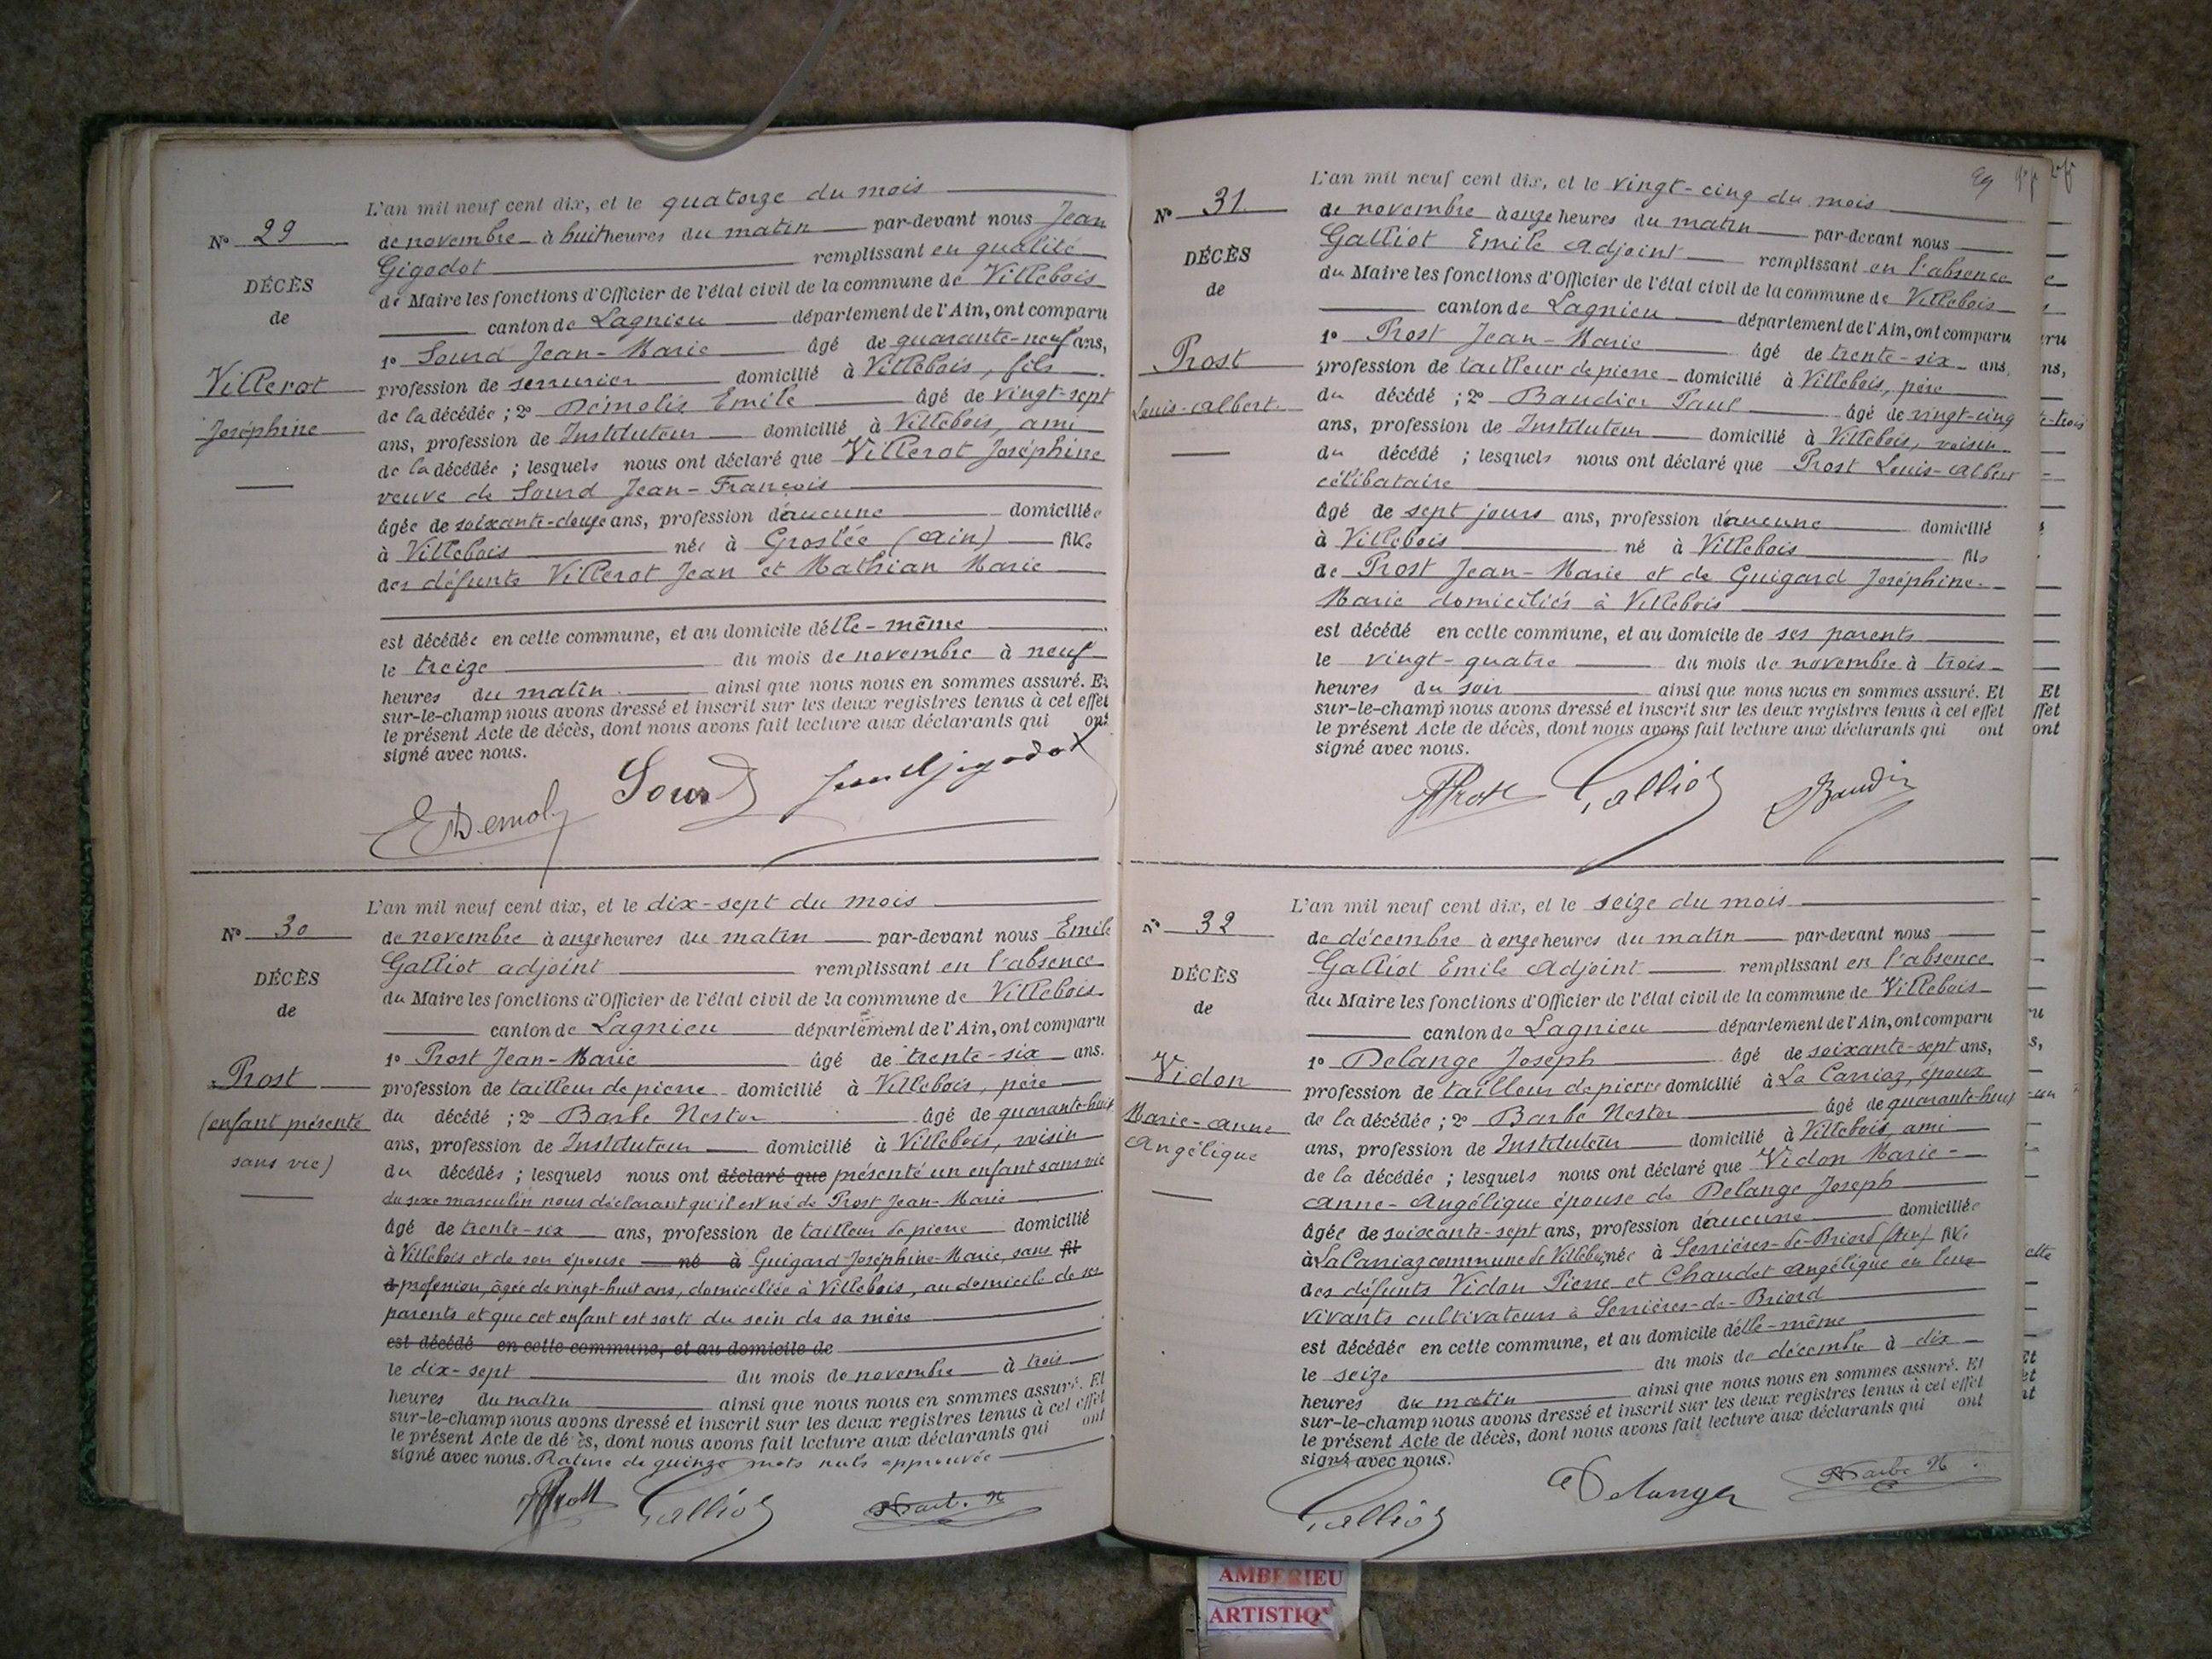 N° 29
DÉCÈS
de
Villerot
Joséphine
L'an mil neuf cent dix, et le quatorze du mois
de novembre à huit heures du matin par-devant nous Jean
Gigodot remplissant en qualité
de Maire les fonctions d'Officier de l'état civil de la commune de Villebois
canton de Lagnieu département de l'Ain, ont comparu
1° Sourd Jean-Marie âgé de quarante-neuf ans,
profession de serrurier domicilié à Villebois, fils
de la décédée ; 2° Démolis Emile âgé de vingt-sept
ans, profession de Instituteur domicilié à Villebois, ami
de la décédée ; lesquels nous ont déclaré que Villerot Joséphine
veuve de Sourd Jean-François
âgée de soixante-douze ans, profession d'aucune domiciliée
à Villebois née à Groslée (Ain) fille
des défunts Villerot Jean et Mathian Marie
est décédée en cette commune, et au domicile d'elle-même
le treize du mois de novembre à neuf
heures du matin ainsi que nous nous en sommes assuré. Et
sur-le-champ nous avons dressé et inscrit sur les deux registres tenus à cet effet
le présent Acte de décès, dont nous avons fait lecture aux déclarants qui ont
signé avec nous.
E Demol Sourd Jean Gigodot
N° 30
DÉCÈS
de
Prost
(enfant présenté
sans vie)
L'an mil neuf cent dix, et le dix-sept du mois
de novembre à onze heures du matin par-devant nous Emile
Galliot adjoint remplissant en l'absence
du Maire les fonctions d'Officier de l'état civil de la commune de Villebois
canton de Lagnieu département de l'Ain, ont comparu
1° Prost Jean-Marie âgé de trente-six ans.
profession de tailleur de pierre domicilié à Villebois, père
du décédé ; 2° Barbe Nestor âgé de quarante-huit
ans, profession de Instituteur domicilié à Villebois, voisin
du décédés ; lesquels nous ont déclaré que présenté un enfant sans vie
du sexe masculin nous déclarant qu'il est né de Prost Jean-Marie
âgé de trente-six ans, profession de tailleur de pierre domicilié
à Villebois et de son épouse né à Guigard Joséphine-Marie, sans fil
profession, âgée de vingt-huit ans, domiciliée à Villebois, au domicile de ses
parents et que cet enfant est sorti du sein de sa mère
est décédé en cette commune, et au domicile de
le dix-sept du mois de novembre à trois
heures du matin ainsi que nous nous en sommes assuré. Et
sur-le-champ nous avons dressé et inscrit sur les deux registres tenus à cet effet
le présent Acte de décès, dont nous avons fait lecture aux déclarants qui ont
signé avec nous. Rature de quinze mots nuls approuvée
Prost Galliot Barbe N
29
N° 31
DÉCÈS
de
Prost
Louis-Albert
L'an mil neuf cent dix, et le vingt-cinq du mois
de novembre à onze heures du matin par-devant nous
Galliot Emile Adjoint remplissant en l'absence
du Maire les fonctions d'Officier de l'état civil de la commune de Villebois
canton de Lagnieu département de l'Ain, ont comparu
1° Prost Jean-Marie âgé de trente-six ans,
profession de tailleur de pierre domicilié à Villebois, père
du décédé ; 2° Baudier Paul âgé de vingt-cinq
ans, profession de Instituteur domicilié à Villebois, voisin
du décédé ; lesquels nous ont déclaré que Prost Louis-Albert
célibataire
âgé de sept jours ans, profession d'aucune domicilié
à Villebois né à Villebois fils
de Prost Jean-Marie et de Guigard Joséphine-
Marie domiciliés à Villebois
est décédé en cette commune, et au domicile de ses parents
le vingt-quatre du mois de novembre à trois
heures du soir ainsi que nous nous en sommes assuré. Et
sur-le-champ nous avons dressé et inscrit sur les deux registres tenus à cet effet
le présent Acte de décès, dont nous avons fait lecture aux déclarants qui ont
signé avec nous.
Prost Galliot Baudier
N° 32
DÉCÈS
de
Vidon
Marie-Anne
Angélique
L'an mil neuf cent dix, et le seize du mois
de décembre à onze heures du matin par-devant nous
Galliot Emile Adjoint remplissant en l'absence
du Maire les fonctions d'Officier de l'état civil de la commune de Villebois
canton de Lagnieu département de l'Ain, ont comparu
1° Delange Joseph âgé de soixante-sept ans,
profession de tailleur de pierre domicilié à La Carriaz, époux
de la décédée ; 2° Barbe Nestor âgé de quarante-huit
ans, profession de Instituteur domicilié à Villebois, ami
de la décédée ; lesquels nous ont déclaré que Vidon Marie-
Anne-Angélique épouse de Delange Joseph
âgée de soixante-sept ans, profession d'aucune domiciliée
à La Carriaz commune de Villebois née à Serrières-de-Briord (Ain) fille
des défunts Vidon Pierre et Chaudet Angélique en leur
vivants cultivateurs à Serrières-de-Briord
est décédée en cette commune, et au domicile d'elle-même
le seize du mois de décembre à dix
heures du matin ainsi que nous nous en sommes assuré. Et
sur-le-champ nous avons dressé et inscrit sur les deux registres tenus à cet effet
le présent Acte de décès, dont nous avons fait lecture aux déclarants qui ont
signé avec nous.
Galliot Delange Barbe N
AMBERIEU
ARTISTIQ